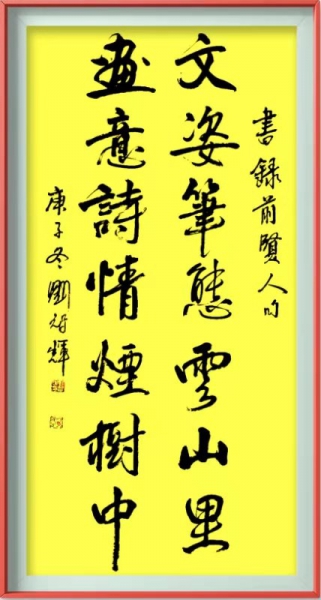 書錄前賢人句
文姿筆態雲山里
畫意詩情煙樹中
庚子冬劉輝